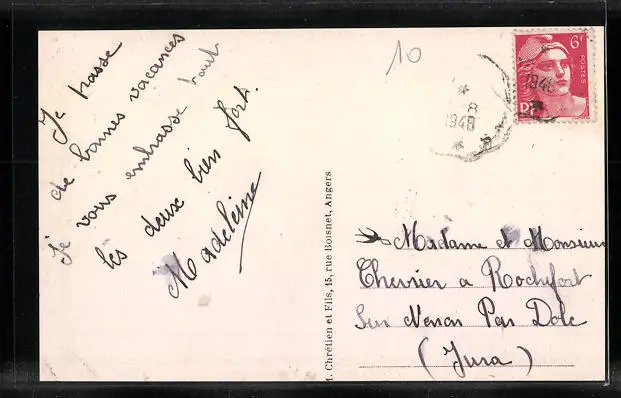 Je passe
de bonnes vacances
Je vous embrasse tout
les deux bien fort.
Madeleine
10
* 8
1948
*
1948
6F
POSTES
RF
1. Chrétien et Fils, 15, rue Boisnet, Angers
Madame et Monsieur
Chevrier a Rochefort
Sur Nenon Par Dole
(Jura)